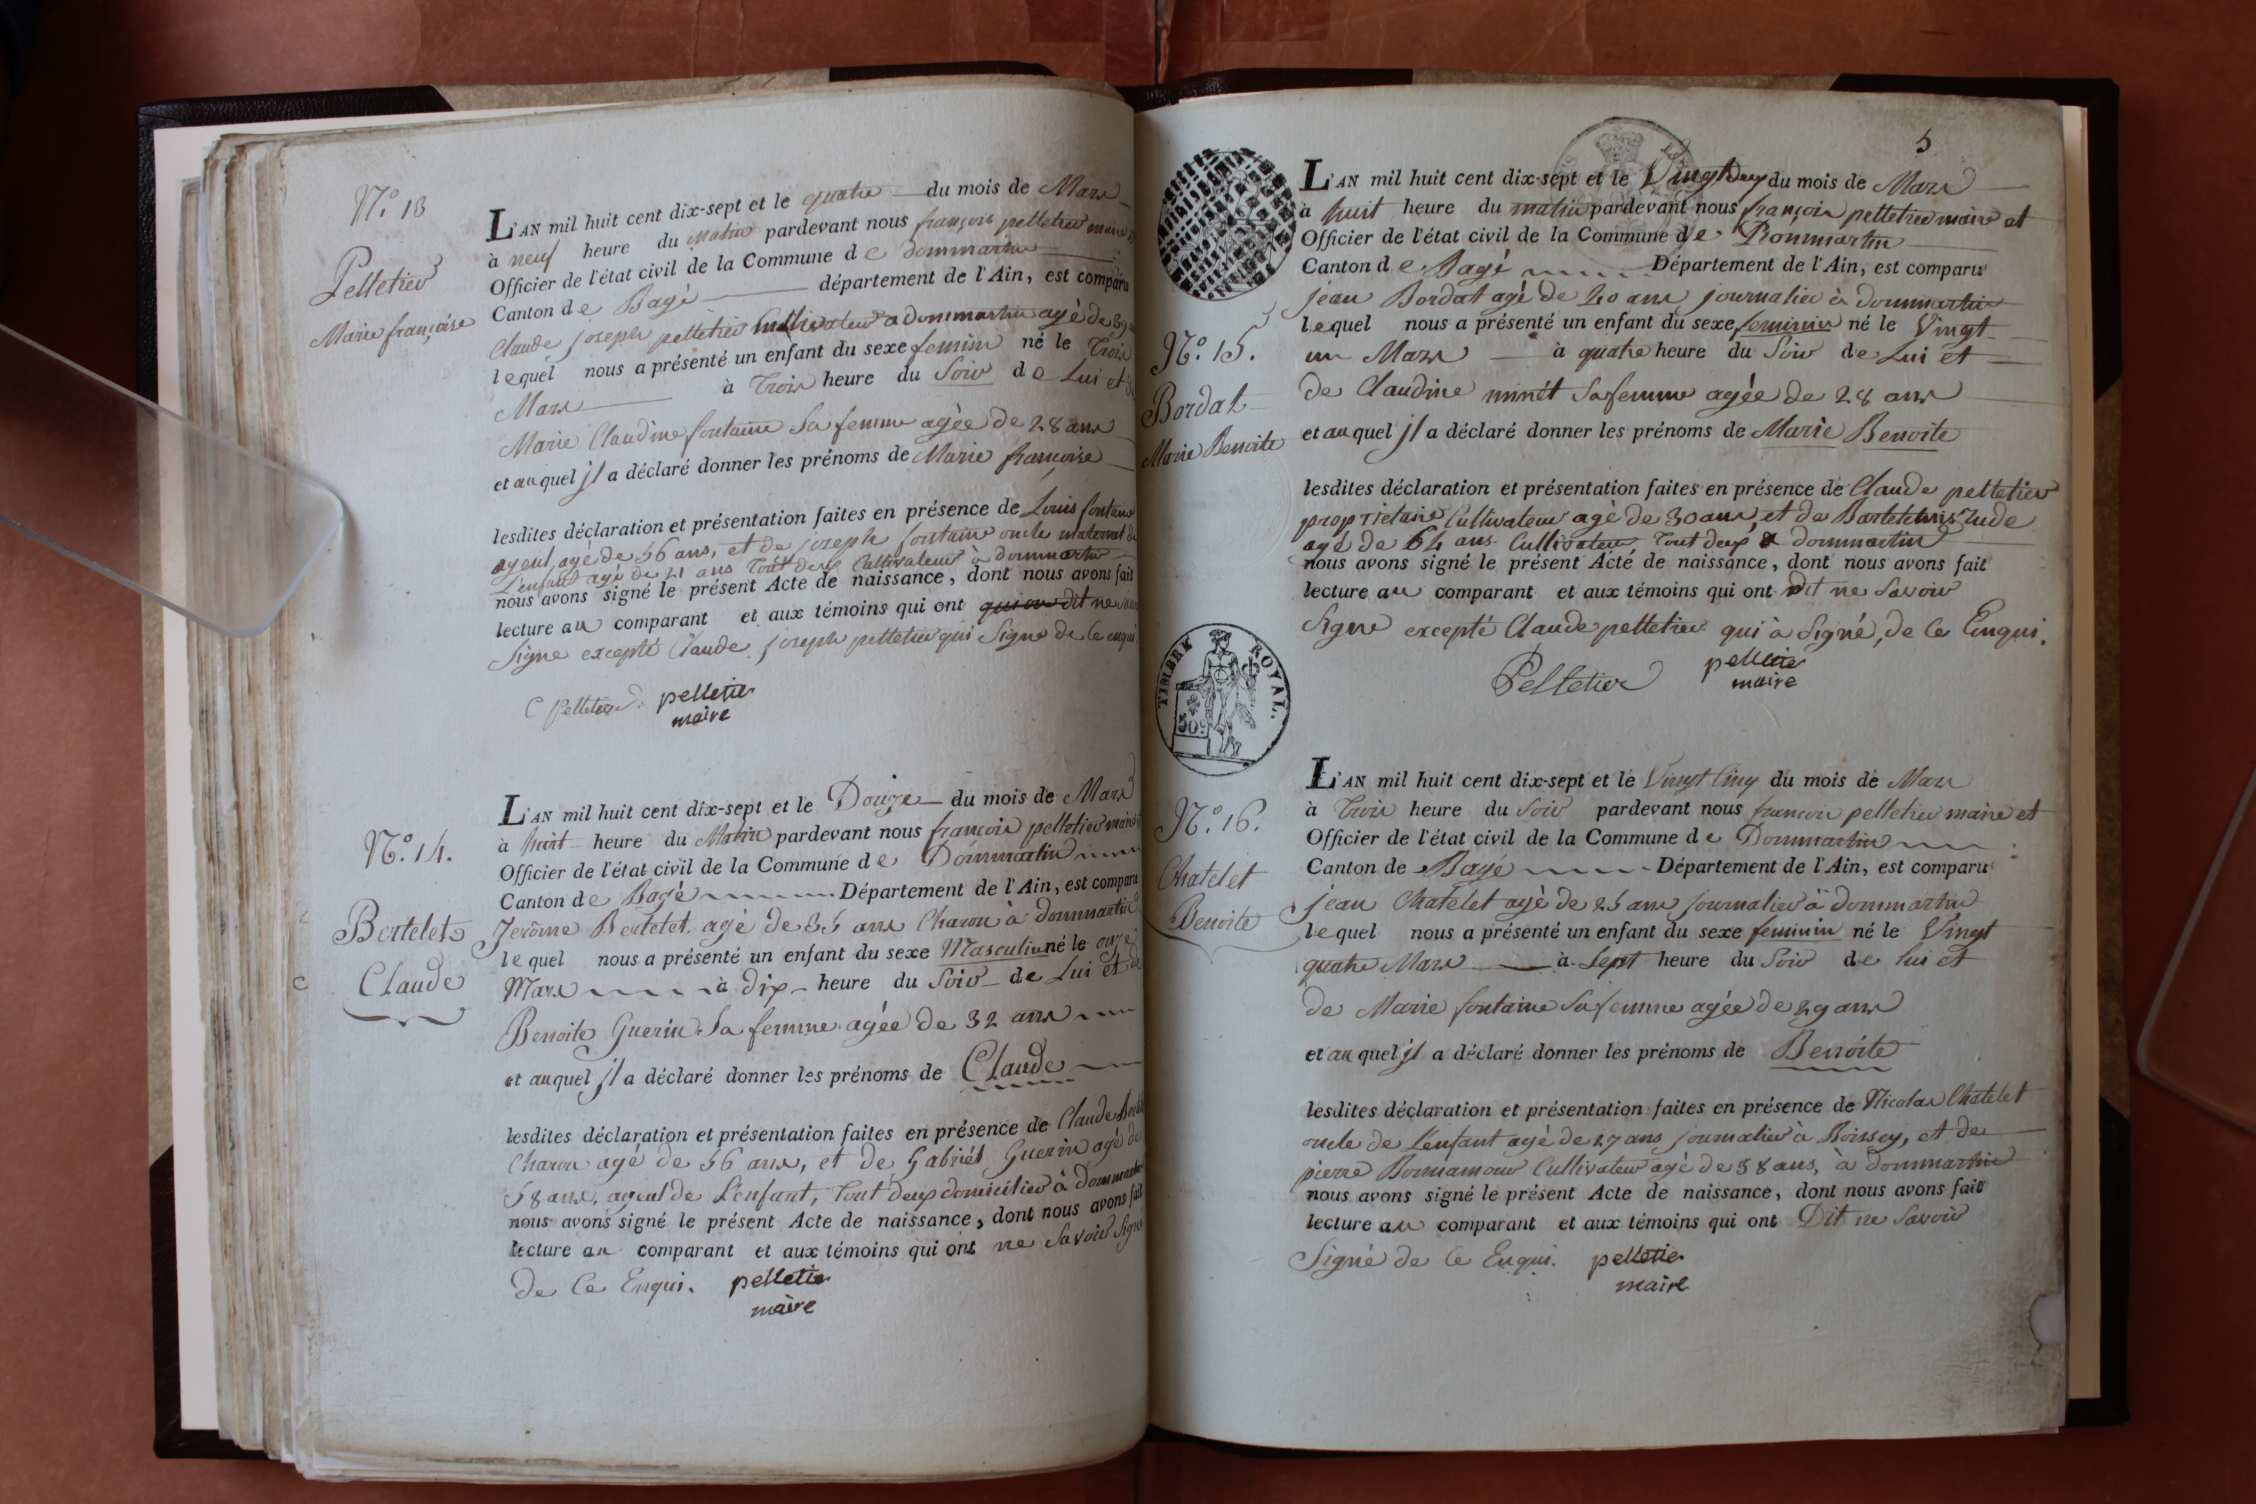 N.° 13
Pelletier
Marie françoise
L'AN mil huit cent dix-sept et le quatre du mois de Mars
à neuf heure du matin pardevant nous françois pelletier maire et
Officier de l'état civil de la Commune de dommartin
Canton de Bagé département de l'Ain, est comparu
Claude joseph pelletier Cultivateur a dommartin agé de
lequel nous a présenté un enfant du sexe feminin né le Trois
Mars à Trois heure du Soir de Lui et de
Marie Claudine fontaine Sa femme agée de 28 ans
et auquel jl a déclaré donner les prénoms de Marie françoise
lesdites déclaration et présentation faites en présence de Louis fontaine
ayeul, agé de 56 ans, et de joseph fontaine oncle maternel de
L'enfant agé de 21 ans Tout deux Cultivateur à dommartin
nous avons signé le présent Acte de naissance, dont nous avons fait
lecture au comparant et aux témoins qui ont dit ne savoir
Signe excepté Claude joseph pelletier qui Signe de Ce enqui
C Pelletier pelletier
maire
N.° 14.
Bertelet
Claude
L'AN mil huit cent dix-sept et le Douze du mois de Mars
à huit heure du Matin pardevant nous françois pelletier maire
Officier de l'état civil de la Commune de Dommartin
Canton de Bagé Département de l'Ain, est comparu
Jerôme Bertelet agé de 35 ans Charon à dommartin
lequel nous a présenté un enfant du sexe Masculin né le onze
Mars à dix heure du Soir de Lui et de
Benoite Guerin Sa femme agée de 32 ans
et auquel jl a déclaré donner les prénoms de Claude
lesdites déclaration et présentation faites en présence de Claude
Charon agé de 56 ans, et de Gabriel Guerin agé de
58 ans, ayeul de L'enfant, Tout deux domicilier à dommartin
nous avons signé le présent Acte de naissance, dont nous avons fait
lecture au comparant et aux témoins qui ont ne Savoir Signé
de Ce Enqui. pelletier
maire
5
N.° 15.
Bordat
Marie Benoite
L'AN mil huit cent dix-sept et le Vingt deux du mois de Mars
à huit heure du matin pardevant nous françois pelletier maire et
Officier de l'état civil de la Commune de Dommartin
Canton de Bagé Département de l'Ain, est comparu
jean Bordat agé de 40 ans journalier à dommartin
lequel nous a présenté un enfant du sexe feminin né le Vingt
un Mars à quatre heure du Soir de Lui et
de Claudine minét Sa femme agée de 28 ans
et auquel jl a déclaré donner les prénoms de Marie Benoite
lesdites déclaration et présentation faites en présence de Claude pelletier
proprietaire Cultivateur agé de 30 ans, et de
agé de 64 ans Cultivateur Tout deux a dommartin
nous avons signé le présent Acte de naissance, dont nous avons fait
lecture au comparant et aux témoins qui ont Dit ne Savoir
Signe excepté Claude pelletier qui à Signé, de Ce Enqui.
Pelletier pelletier
maire
TIMBRE ROYAL.
50c
N.° 16.
Chatelet
Benoite
L'AN mil huit cent dix-sept et le Vingt Cinq du mois de Mars
à Trois heure du Soir pardevant nous françois pelletier maire et
Officier de l'état civil de la Commune de Dommartin
Canton de Bagé Département de l'Ain, est comparu
jean Chatelet agé de 25 ans journalier à dommartin
lequel nous a présenté un enfant du sexe feminin né le Vingt
quatre Mars à Sept heure du Soir de lui et
de Marie fontaine Sa femme agée de 29 ans
et auquel jl a déclaré donner les prénoms de Benoite
lesdites déclaration et présentation faites en présence de Nicolas Chatelet
oncle de L'enfant agé de 27 ans journalier à Boissey, et de
pierre Bonnamour Cultivateur agé de 38 ans, à dommartin
nous avons signé le présent Acte de naissance, dont nous avons fait
lecture au comparant et aux témoins qui ont Dit ne Savoir
Signé de Ce Enqui. pelletier
maire